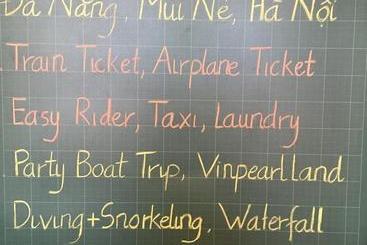 Đà Nẵng, Mũi Né, Hà Nội
Train Ticket, Airplane Ticket
Easy Rider, Taxi, Laundry
Party Boat Trip, Vinpearlland
Diving+Snorkeling, Waterfall